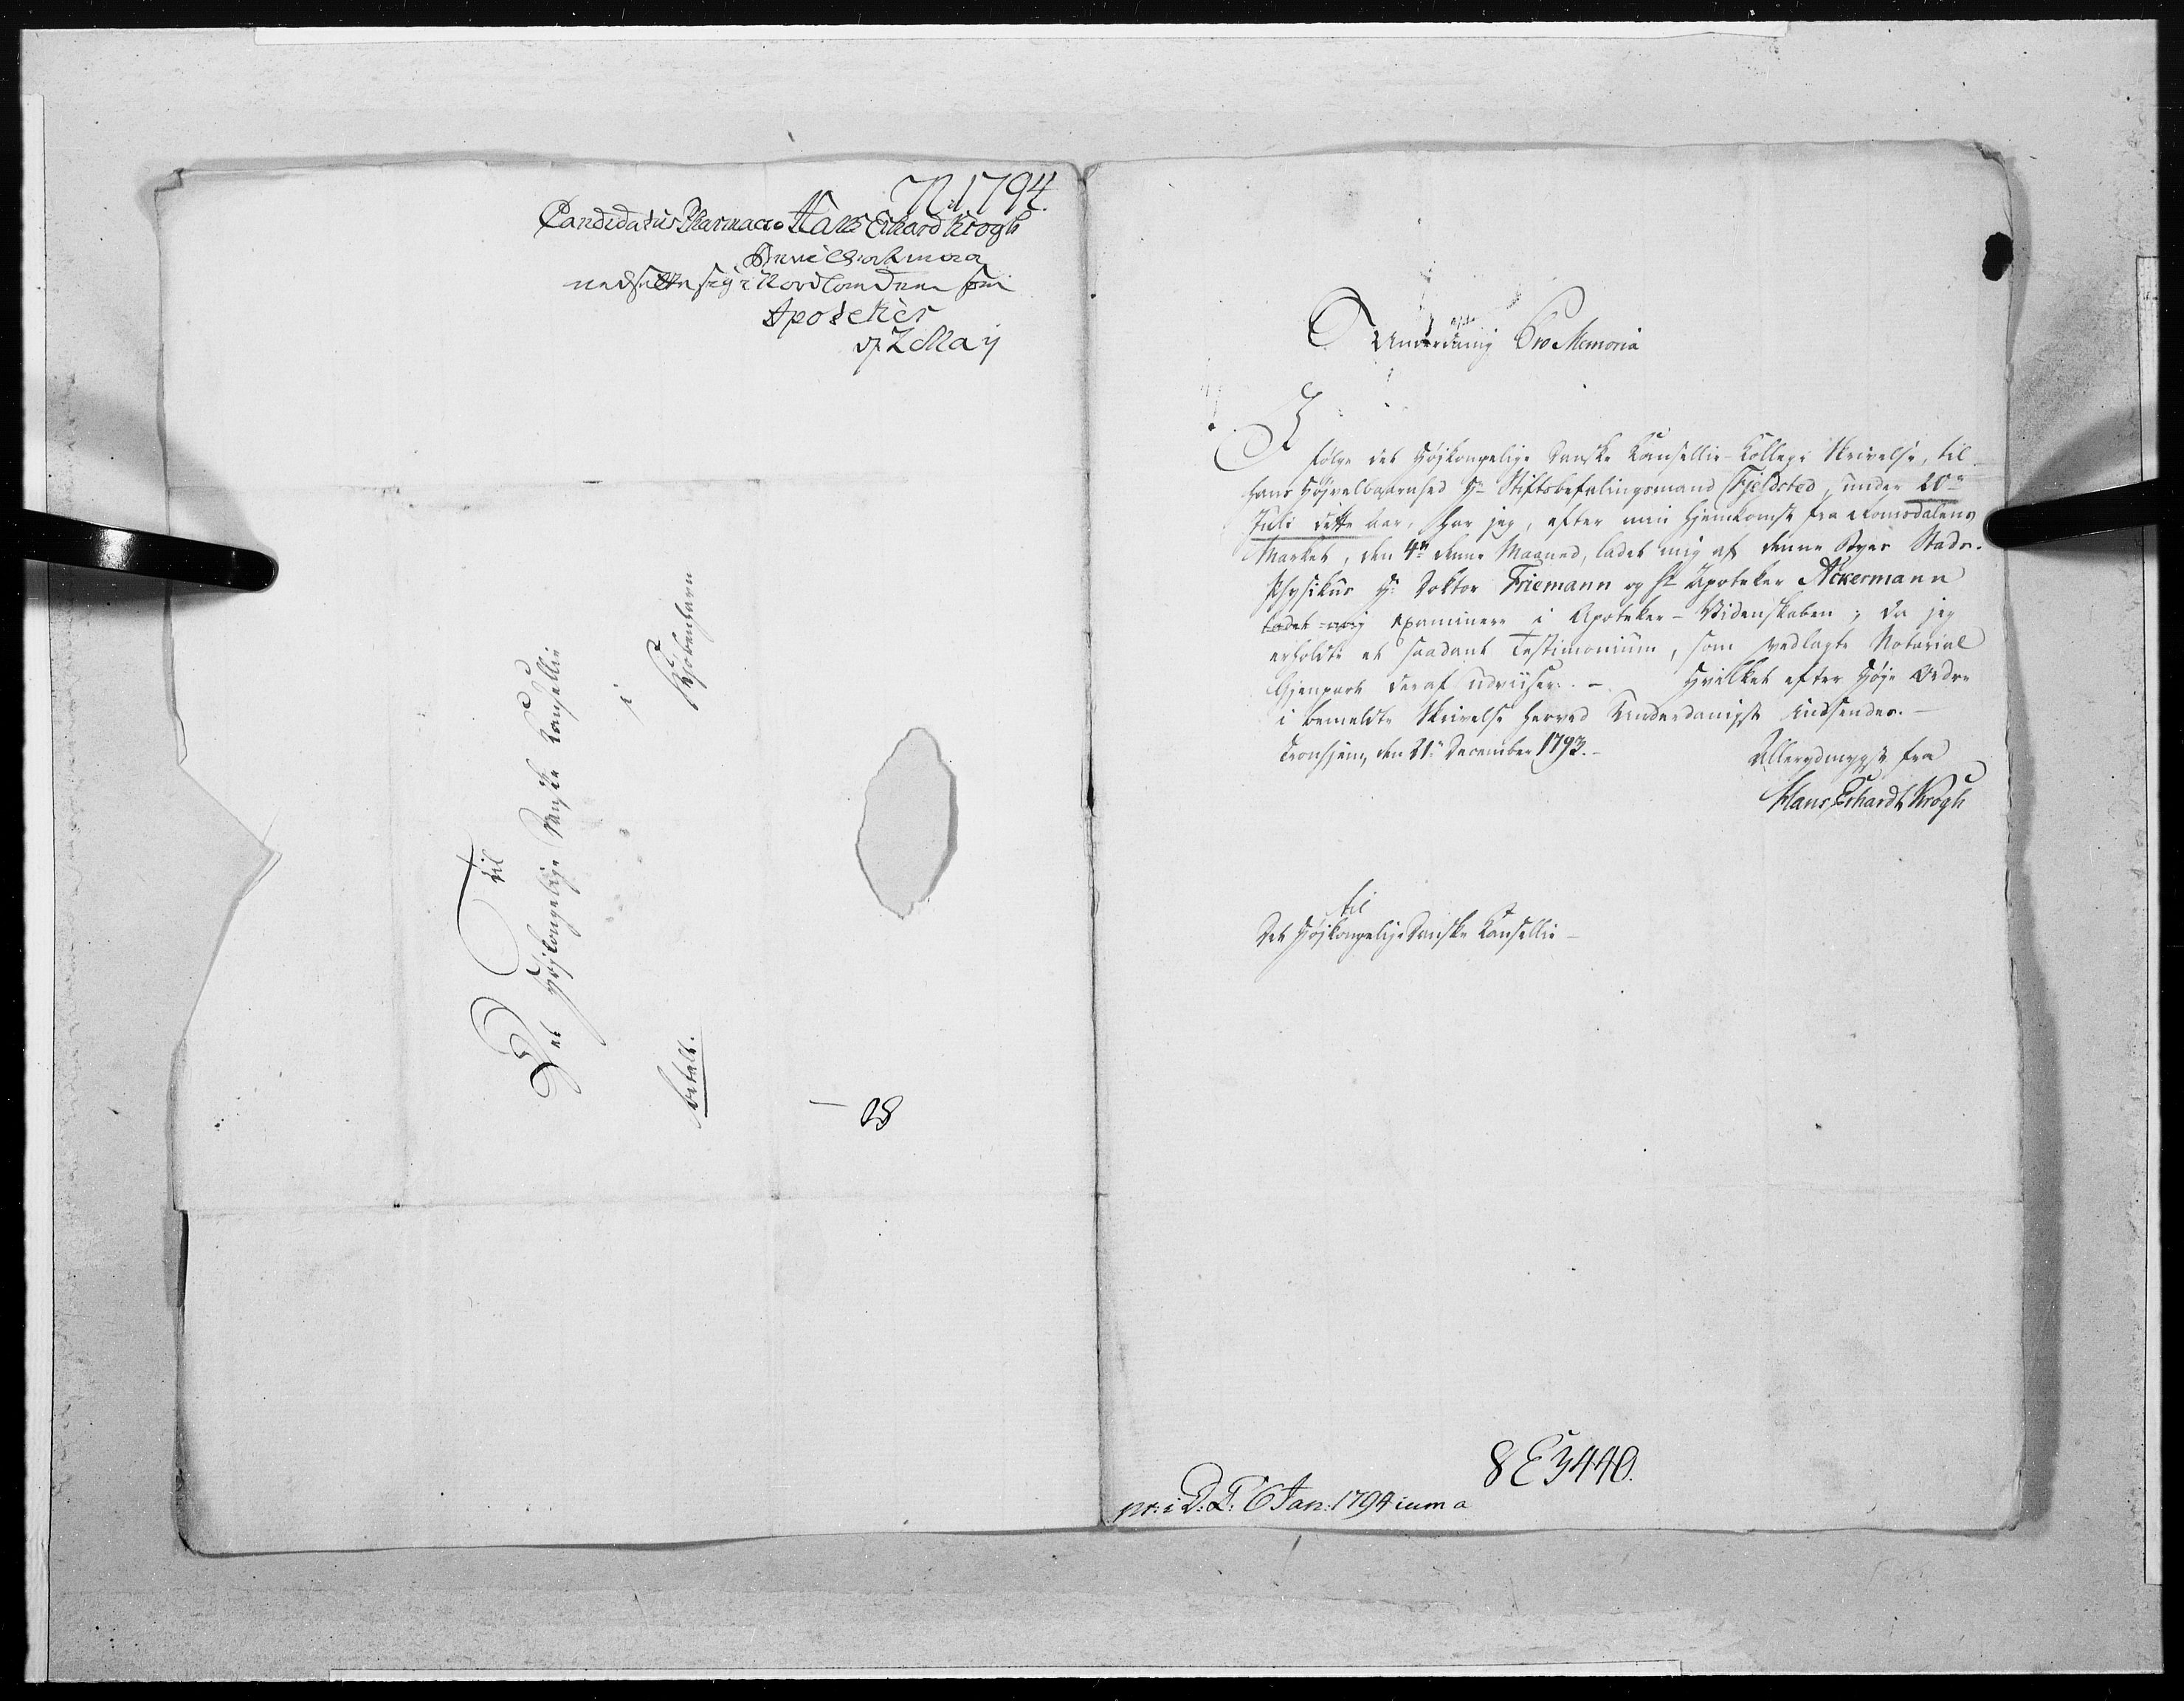 N 1794.
Candidatus Pharmaciæ Hans Erhard Krogh
nedsætte sig i Nordlandene som
Apoteker
df 2 May
Til
Det Højkongelige Danske Kansellie
i
Kjøbenhavn
betalt.
— 08
Underdanigst Pro Memoria
I
følge det Højkongelige Danske Kansellie-Kollegi Skrivelse, til
hans Højvelbaarnhed Hr Stiftsbefalingsmand Fjeldsted, under 20de
Juli dette Aar, har jeg, efter min Hjemkomst fra Romsdalens
Market, den 4de denne Maaned, ladet mig af denne Byes Stads-
Physikus Hr Doktor Friemann og Hr Apoteker Ackermann
ladet mig examinere i Apoteker-Videnskaben; da jeg
erholdte et saadant Testimonium, som vedlagte Notarial
Gjenpart deraf udviiser. — Hvilket efter Høje Ordre
i bemeldte Skrivelse herved Underdanigst indsendes. —
Tronhjem, den 21de December 1793. —
Allerydmygst fra
Hans Erhardt Krogh
til
Det Højkongelige Danske Kansellie —
8 E 3440.
pr: i D: C: 6 Jan: 1794 cum a